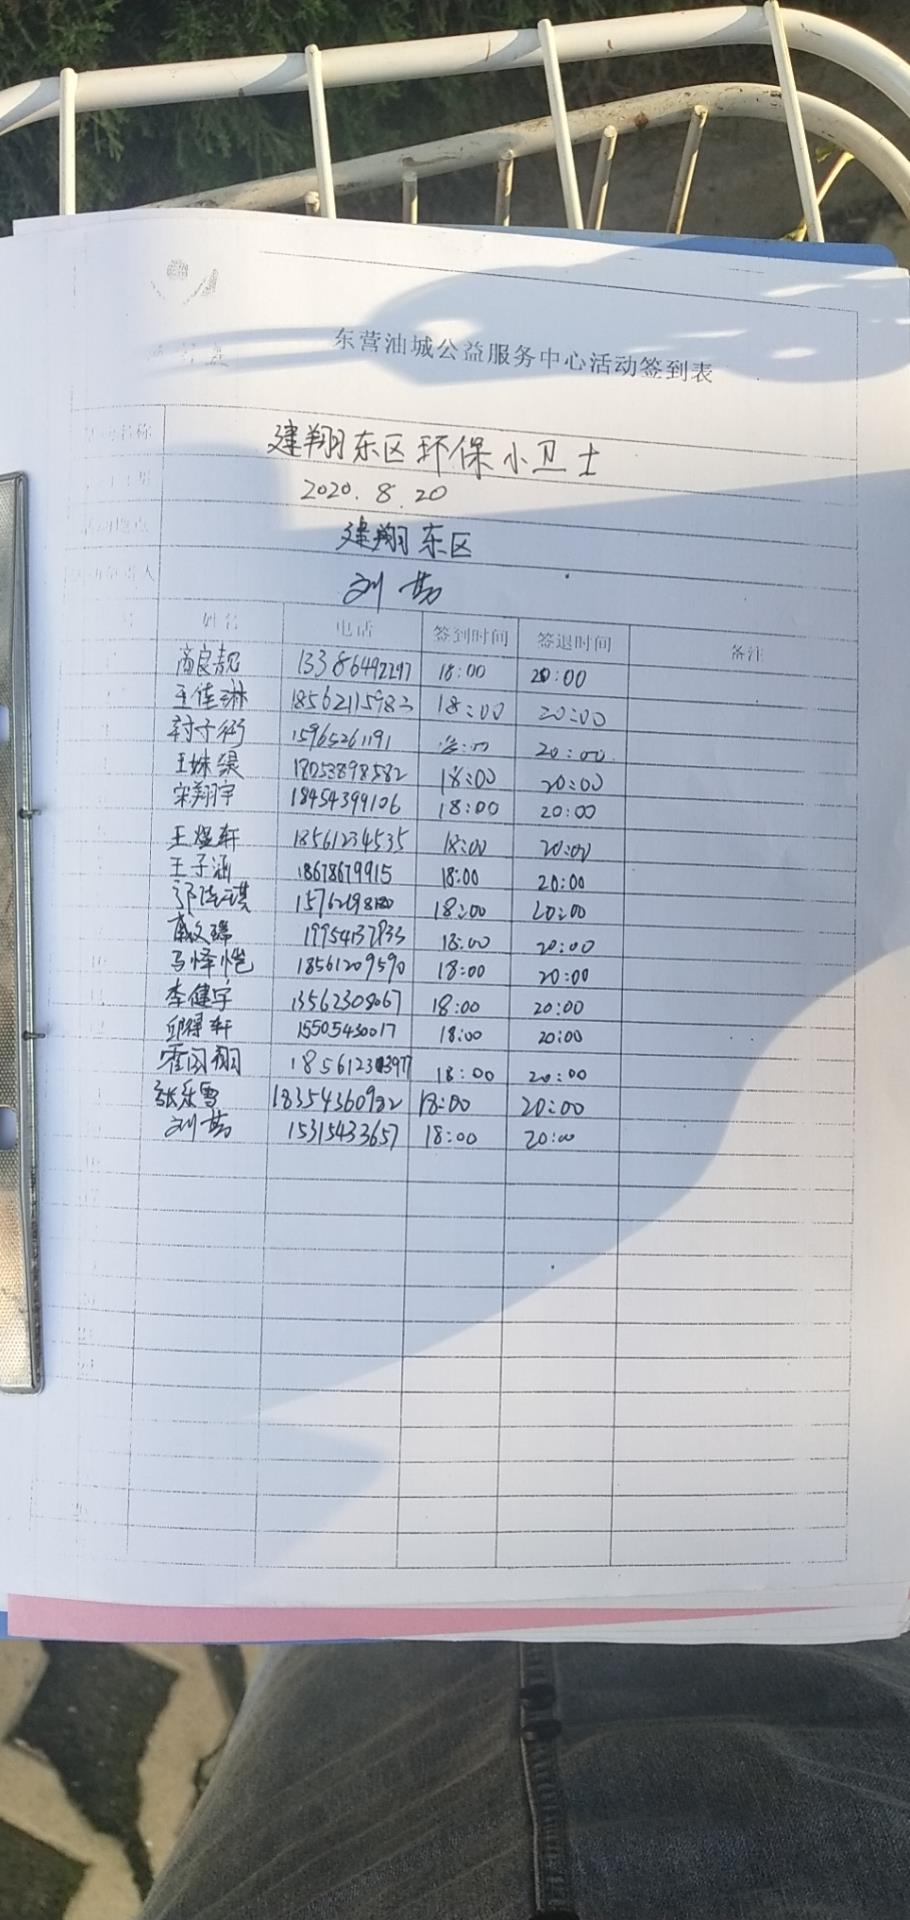 东营油城公益服务中心活动签到表
活动名称 建翔东区环保小卫士
2020.8.20
活动地点 建翔东区
活动负责人 刘
姓名 电话 签到时间 签退时间 备注
商良靓 13386492297 18:00 20:00
王佳琳 18562115983 18:00 20:00
15965261191 20:00
王姝 18053898582 18:00 20:00
宋翔宇 18454399106 18:00 20:00
王煜轩 18561234535 18:00 20:00
王子涵 18678679915 18:00 20:00
18:00 20:00
19954137833 18:00 20:00
马怿恺 18561209590 18:00 20:00
李健宇 13562308067 18:00 20:00
邱得轩 15505430017 18:00 20:00
霍闰翔 18:00 20:00
张乐雪 18354360982 18:00 20:00
刘 15315433657 18:00 20:00